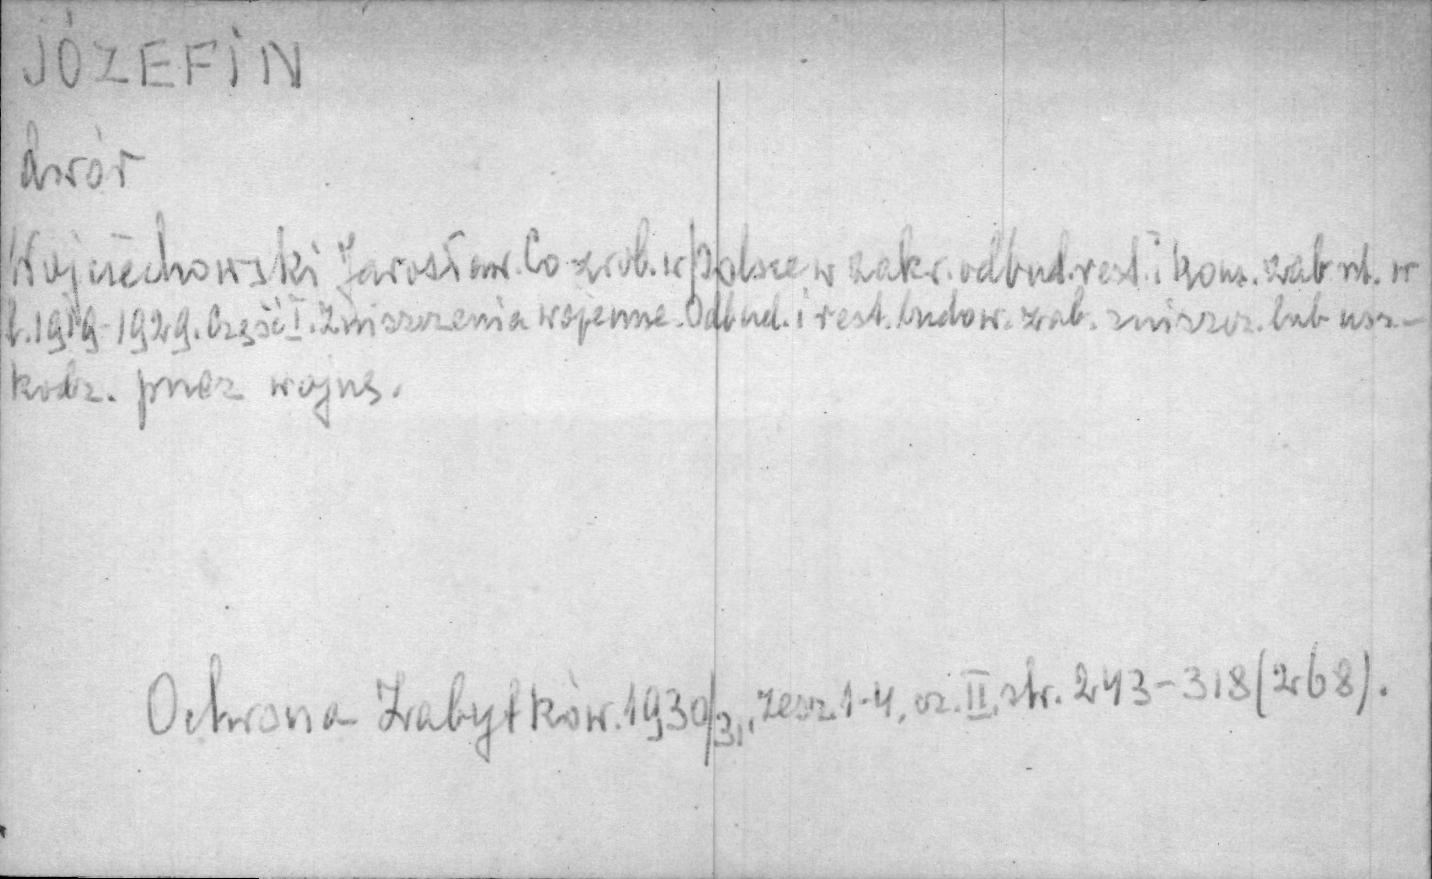 JÓZEFIN
dwór
Wojciechowski Jarosław. Co zrob. w Polsce w zakr. odbud. rest. i kons. zab szt. w
l. 1919-1929. Część I. Zniszczenia wojenne. Odbud. i rest. budow. zab. zniszcz. lub usz-
kodz. przez wojnę.
Ochrona Zabytków. 1930/31, zesz. 1-4, cz. II, str. 243-318 (268).